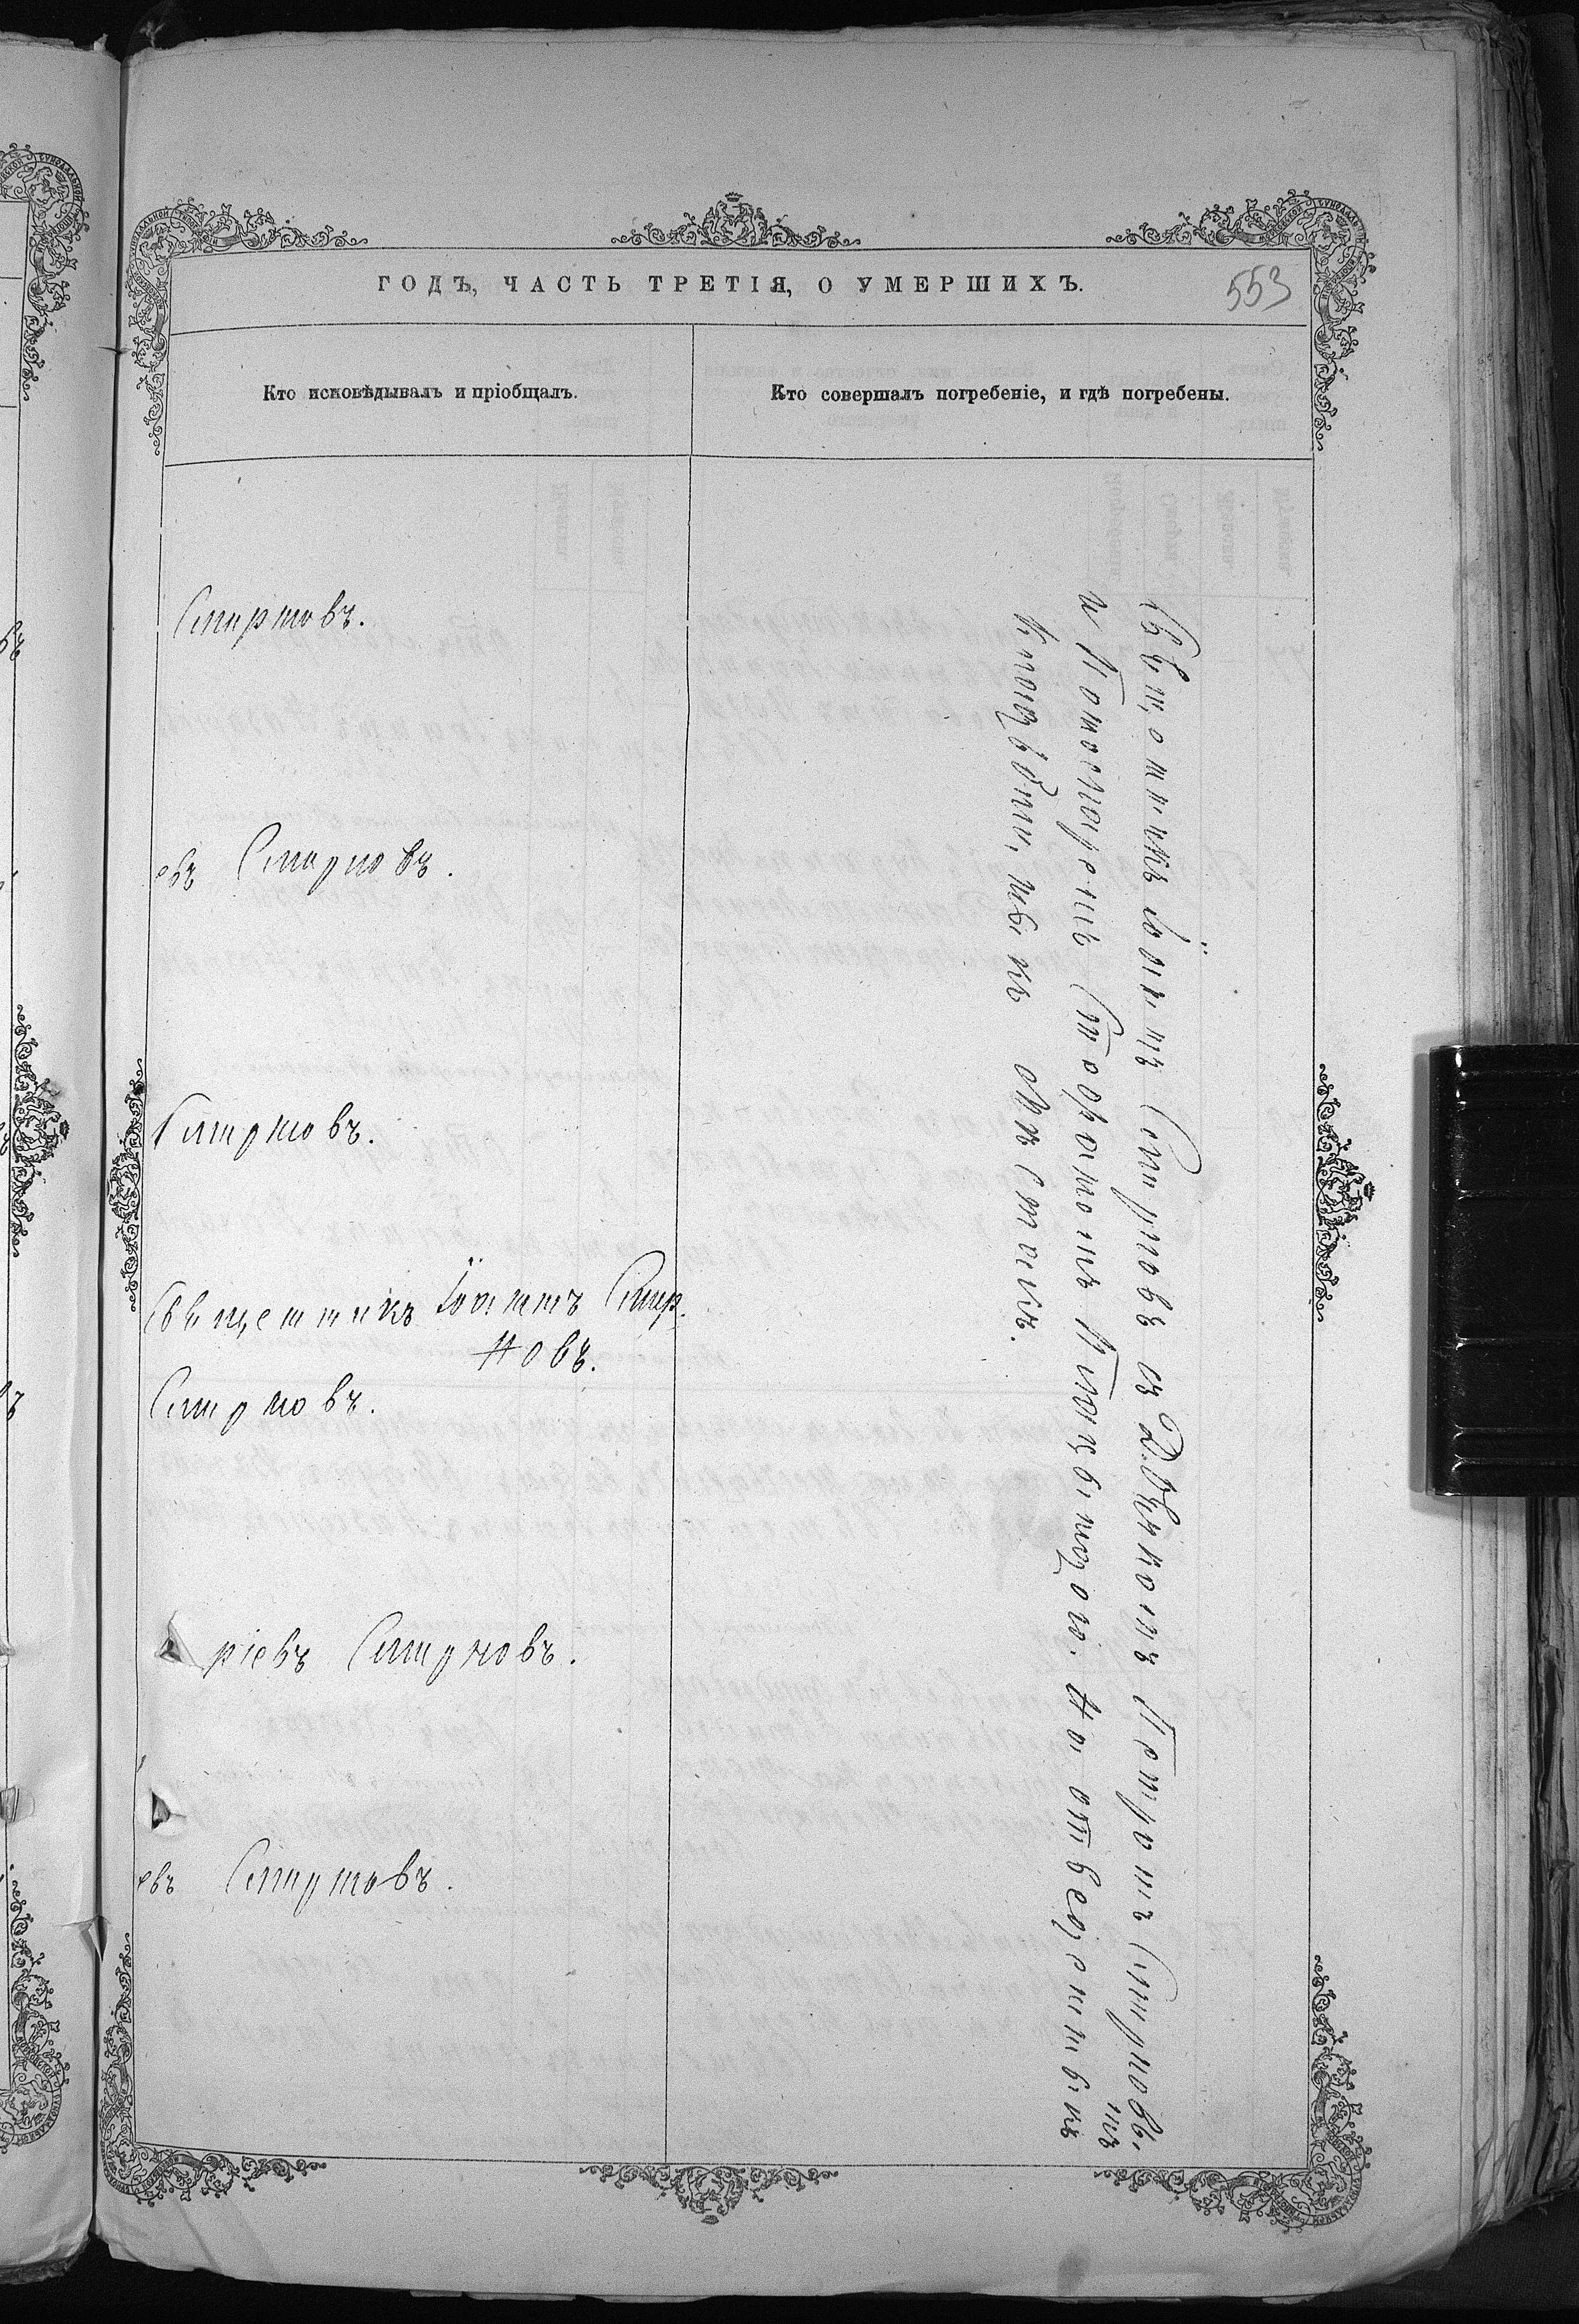 ГОДЪ, ЧАСТЬ ТРЕТІЯ, О УМЕРШИХЪ.
553
Кто исповѣдывалъ и пріобщалъ.
Кто совершалъ погребеніе, и гдѣ погребены.
Смирновъ.
евъ Смирновъ.
Смирновъ.
Священникъ Іоаннъ Смир-
новъ.
Смирновъ.
ріевъ Смирновъ.
евъ Смирновъ.
Священникъ Іоаннъ Смирновъ съ Діакономъ Петромъ Смирновы-
мъ
и Псаломщикъ на отведенномъ
кладбищѣ